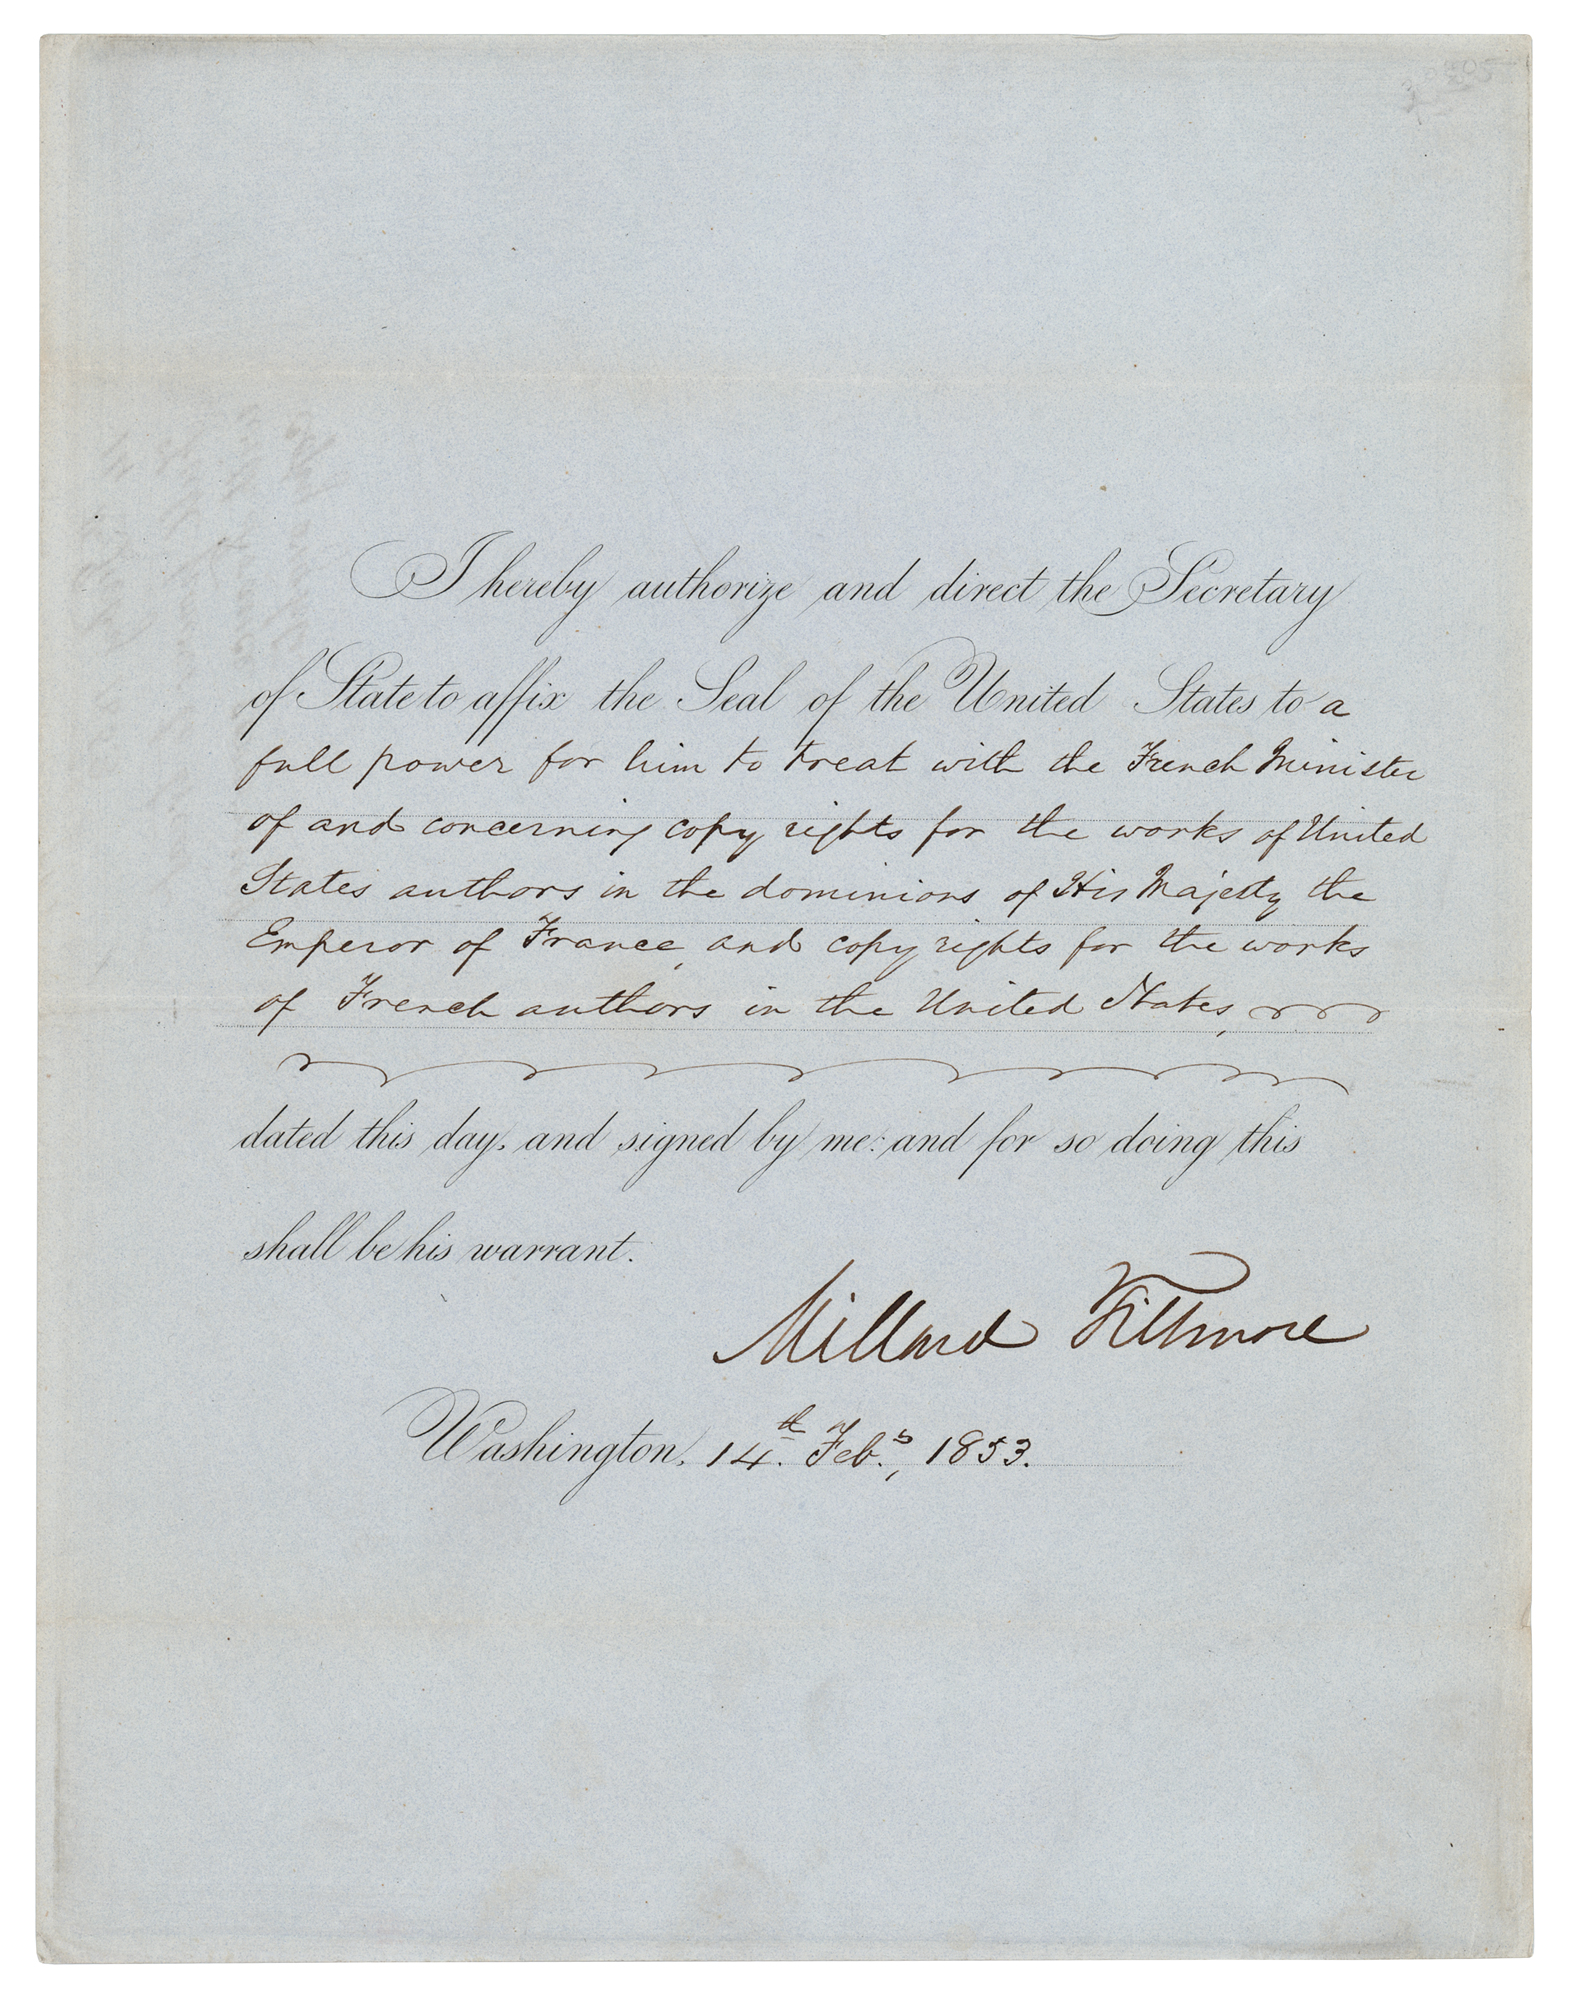 I hereby authorize and direct the Secretary
of State to affix the Seal of the United States to a
full power for him to treat with the French Minister
of and concerning copy rights for the works of United
States authors in the dominions of His Majesty the
Emperor of France, and copy rights for the works
of French authors in the United States,
dated this day, and signed by me: and for so doing this
shall be his warrant.
Millard Fillmore
Washington, 14th. Feb.y, 1853.